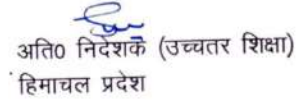 अति0 निदेशक (उच्चतर शिक्षा)
हिमाचल प्रदेश